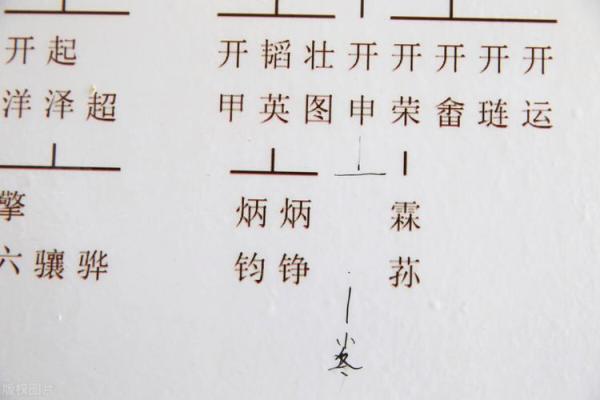 开 起 开 韬 壮 开 开 开 开 开
洋 泽 超 甲 英 图 申 荣 畲 琏 运
擎 炳 炳 霖
六 骧 骅 钧 铮 荪
版权图片